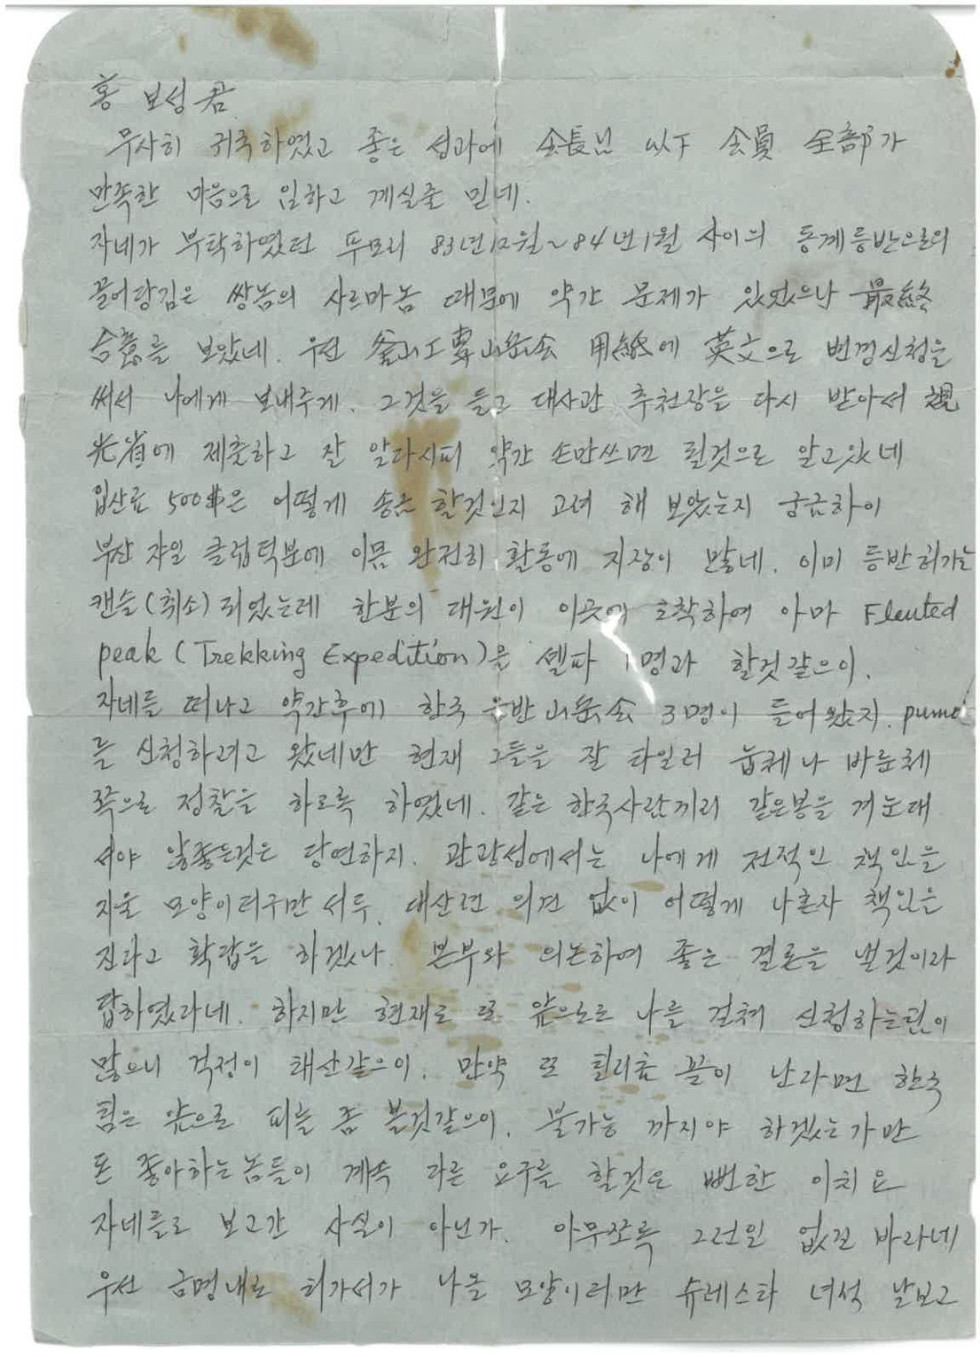 홍 보성 君
무사히 귀국하였고 좋은 성과에 会長님 以下 会員 全部가
만족한 마음으로 임하고 계실줄 믿네.
자네가 부탁하였던 뚜모리 83년 12월~84년 1월 사이의 동계등반으로의
끌어당김은 쌍놈의 사르마놈 때문에 약간 문제가 있었으나 最終
合意를 보았네. 우선 釜山工専山岳会 用紙에 英文으로 변경신청을
써서 나에게 보내주게. 그것을 들고 대사관 추천장을 다시 받아서 観
光省에 제출하고 잘 알다시피 약간 손만쓰면 될것으로 알고있네
입산료 500$은 어떻게 송금 할것인지 고려 해 보았는지 궁금하이
부산 쟈일 클럽덕분에 이몸 완전히 활동에 지장이 많네. 이미 등반허가는
캔슬(취소)되었는데 한분의 대원이 이곳에 도착하여 아마 Fleuted
peak (Trekking Expedition)을 셀파 1명과 할것같으이.
자네를 떠나고 약간후에 한국 山岳会 3명이 들어왔지. pumo
를 신청하려고 왔네만 현재 그들을 잘 타일러 눕체나 바룬체
쪽으로 정찰을 하도록 하였네. 같은 한국사람끼리 같은봉을 겨눈대
서야 않좋은것은 당연하지. 관광성에서는 나에게 전적인 책임을
지울 모양이더구만서두. 대산련 의견 없이 어떻게 나혼자 책임을
진다고 확답을 하겠나. 본부와 의논하여 좋은 결론을 낼것이라
답하였다네. 하지만 현재로 또 앞으로도 나를 걸쳐 신청하는팀이
많으니 걱정이 태산같으이. 만약 또 필리춤 꼴이 난다면 한국
팀은 앞으로 피를 좀 볼것같으이. 불가능 까지야 하겠는가만
돈 좋아하는놈들이 계속 다른 요구를 할것은 뻔한 이치요
자네들도 보고간 사실이 아닌가. 아무쪼록 그런일 없길 바라네
우선 금명내로 허가서가 나올 모양이더만 슈레스타 녀석 날보고